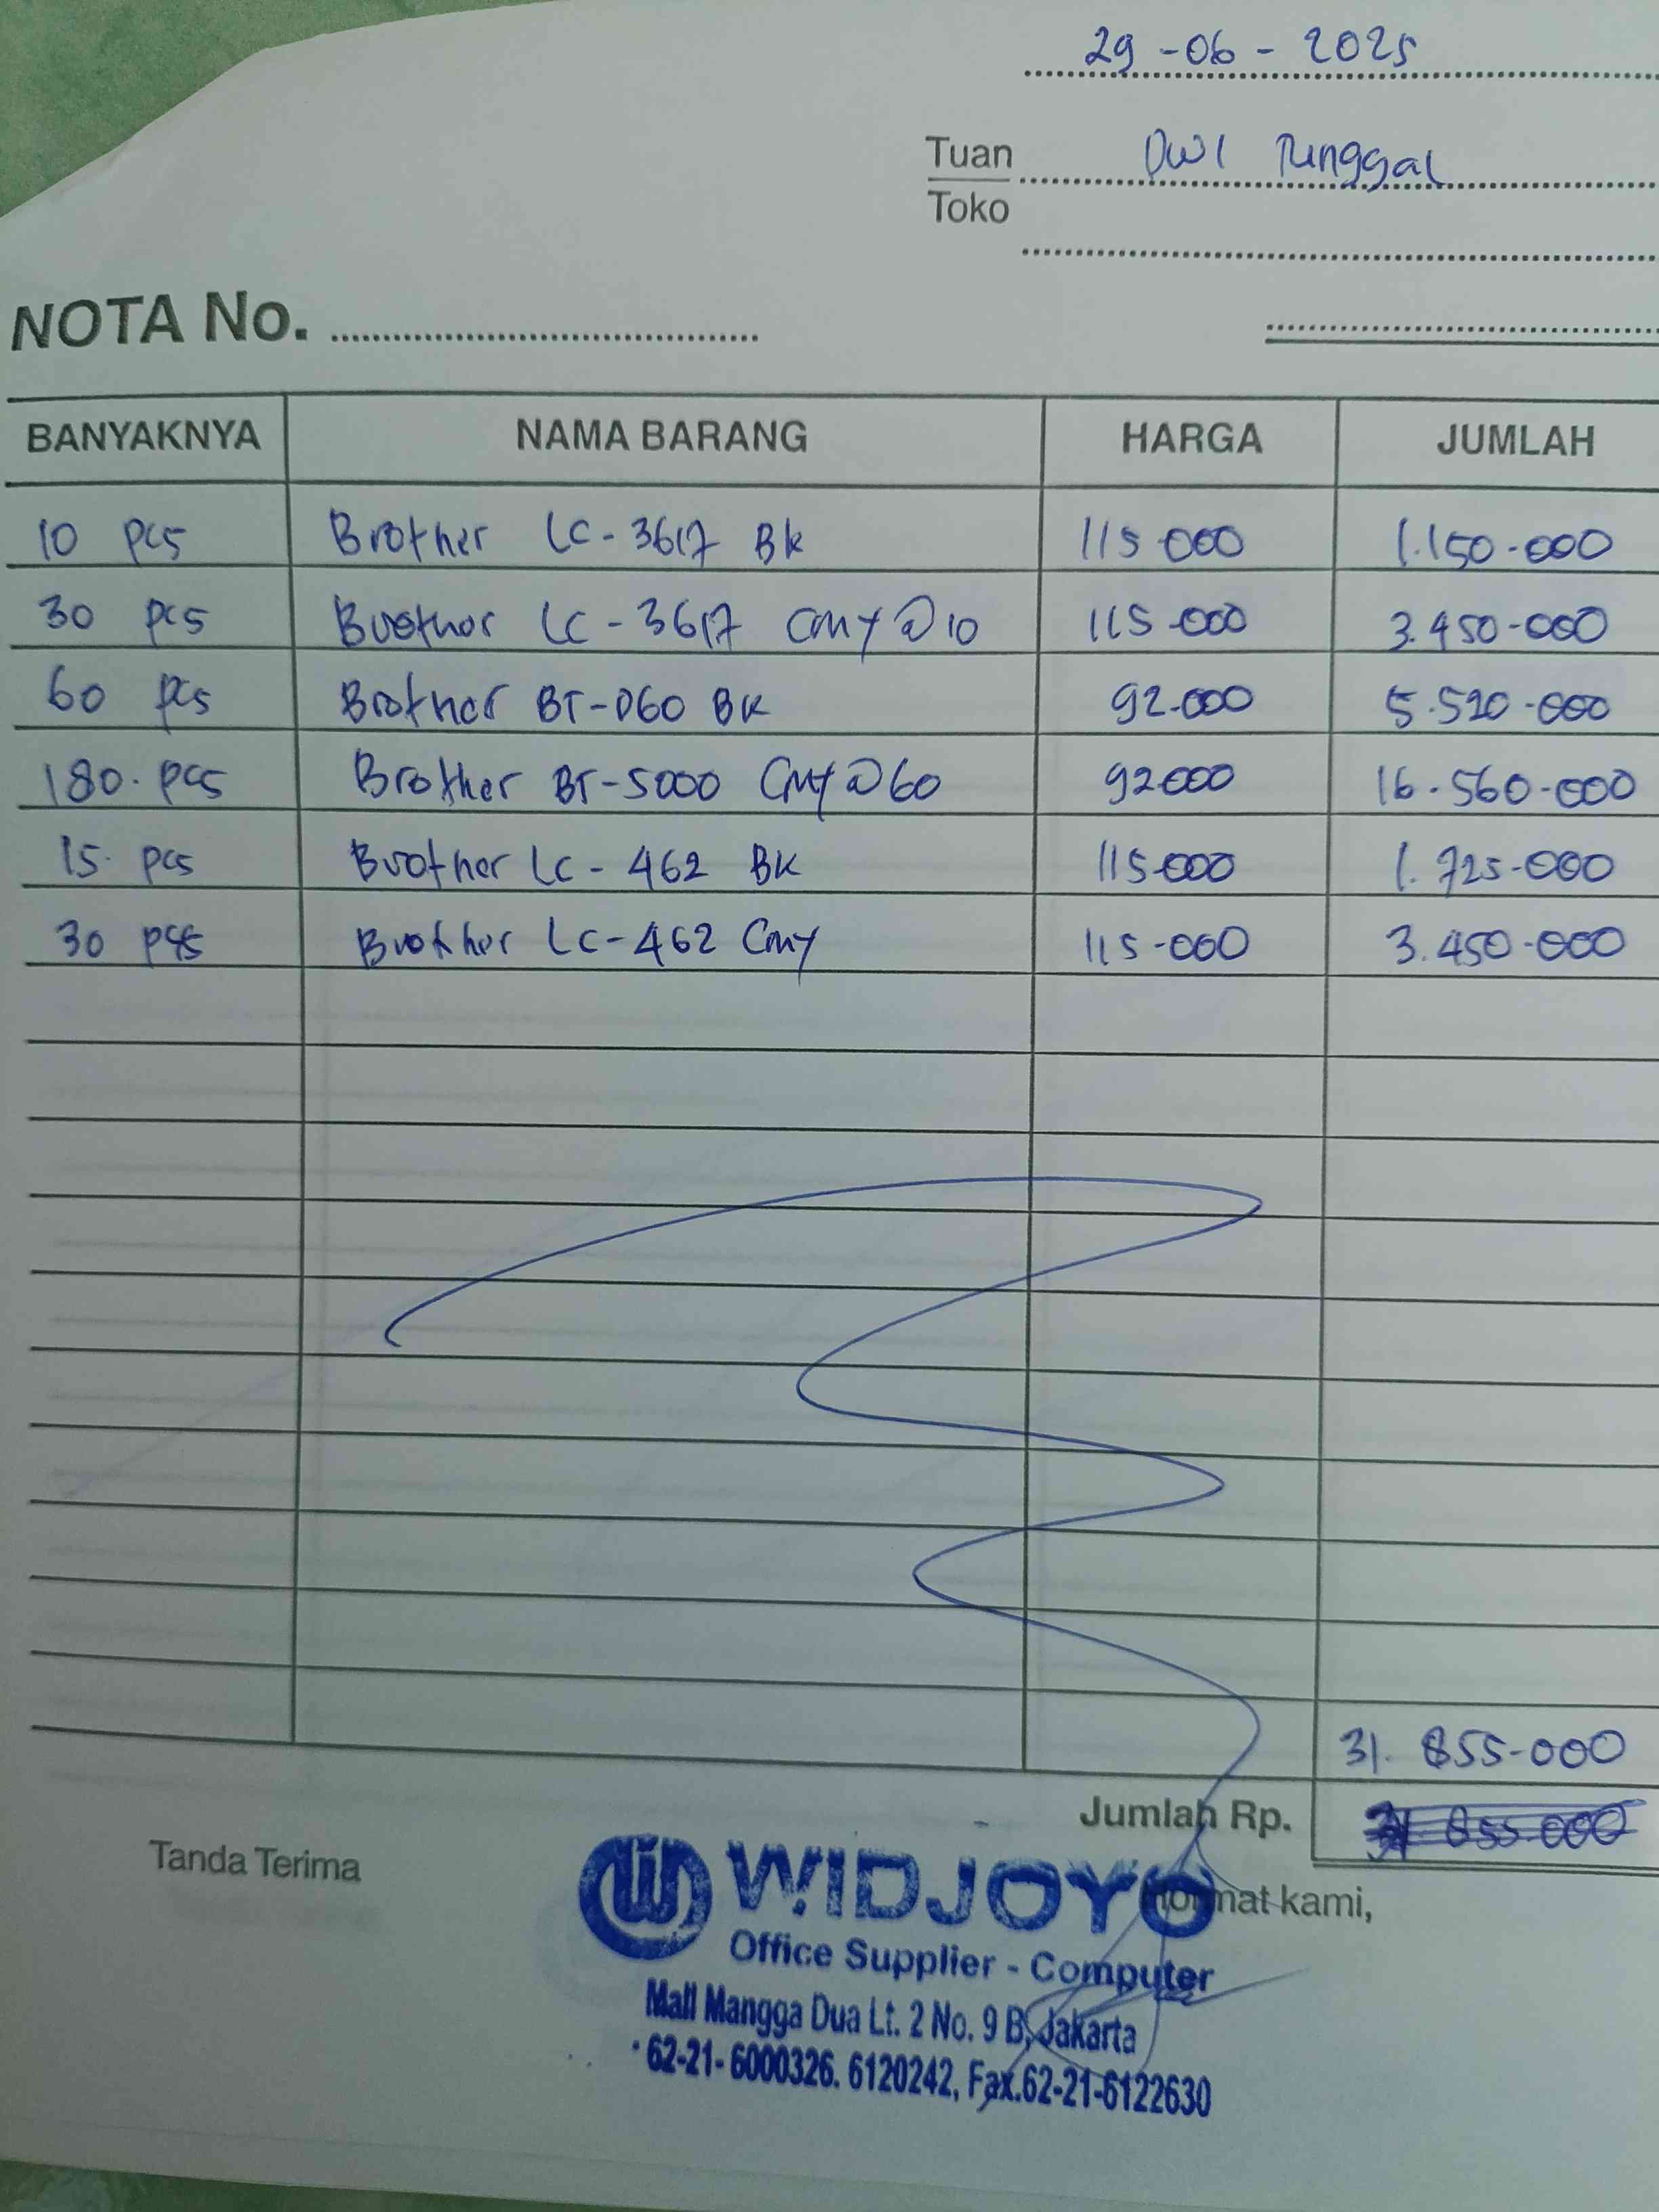 29-06-2025
Tuan Dwi Tunggal
Toko
NOTA No.
BANYAKNYA NAMA BARANG HARGA JUMLAH
10 pcs Brother LC-3617 Bk 115.000 1.150.000
30 pcs Brother LC-3617 CMY @10 115.000 3.450.000
60 pcs Brother BT-D60 BK 92.000 5.520.000
180 pcs Brother BT-5000 CMY @60 92.000 16.560.000
15 pcs Brother LC-462 BK 115.000 1.725.000
30 pcs Brother LC-462 CMY 115.000 3.450.000
31.855.000
Jumlah Rp. 31.855.000
Tanda Terima
Hormat kami,
WIDJOYO
Office Supplier - Computer
Mall Mangga Dua Lt. 2 No. 9 B, Jakarta
62-21-6000326. 6120242, Fax.62-21-6122630